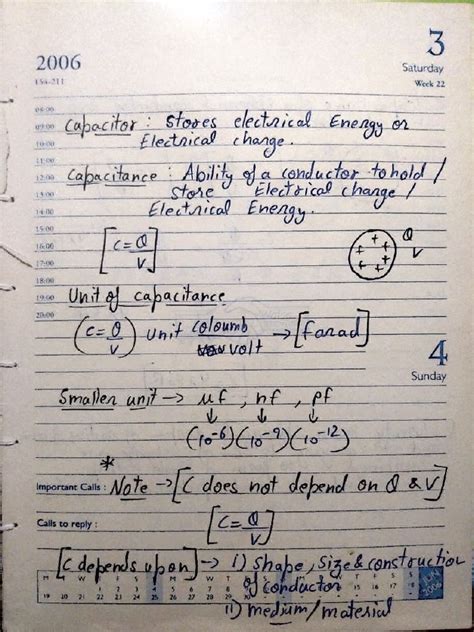 2006
3
Saturday
154-211
Week 22
08:00
09:00 Capacitor : Stores electrical Energy or
10:00 Electrical charge.
11:00
12:00 Capacitance : Ability of a conductor to hold /
13:00 Store Electrical charge /
14:00 Electrical Energy.
15:00
16:00 [C = Q/V] Q V
17:00
18:00
19:00 Unit of capacitance
20:00
(C = Q/V) Unit Coloumb / volt → [farad]
4
Sunday
Smaller unit → μf , nf , pf
(10⁻⁶) (10⁻⁹) (10⁻¹²)
*
Important Calls : Note → [C does not depend on Q & V]
Calls to reply : [C = Q/V]
[C depends upon] → i) Shape, Size & construction
of conductor
ii) medium / material